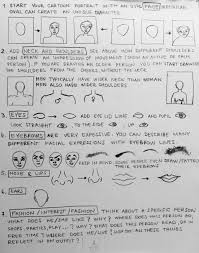 1 START YOUR CARTOON PORTRAIT WITH AN OVAL FACE. DIFFERENT
OVAL CAN CREATE AN UNIQUE CHARACTER
2. ADD NECK AND SHOULDERS. SEE ABOVE HOW DIFFERENT SHOULDERS
CAN CREATE AN IMPRESSION OF MOVEMENT (FROM AN ACTIVE OR CALM
PERSON). IF YOU'RE DRAWING AN OLDER PERSON YOU CAN START DRAWING
THE SHOULDERS FROM THE CHEEKS, WITHOUT THE NECK
MEN TYPICALLY HAVE WIDER NECK THAN WOMAN
MEN ALSO HAVE WIDER SHOULDERS
3. EYES ADD EYE LID LINE AND PUPIL AND
LOOK STRAIGHT TO THE SIDE UP
EYEBROWS ARE VERY EXPRESSIVE. YOU CAN DESCRIBE MANY
DIFFERENT FACIAL EXPRESSIONS WITH EYEBROW LINES.
SOME PEOPLE
NOSE & LIPS
EARS
FASHION / INTEREST THINK ABOUT A SPECIFIC PERSON
WHAT DOES HE/SHE LIKE? WHY? WHERE DOES THIS PERSON GO,
SHOPS, PARTIES, PLAY...? WHAT DOES THIS PERSON READ, OR IN
FREE TIME? WHERE DOES HE/SHE LIVE? HOW DO THESE THINGS
REFLECT IN AN OUTFIT?